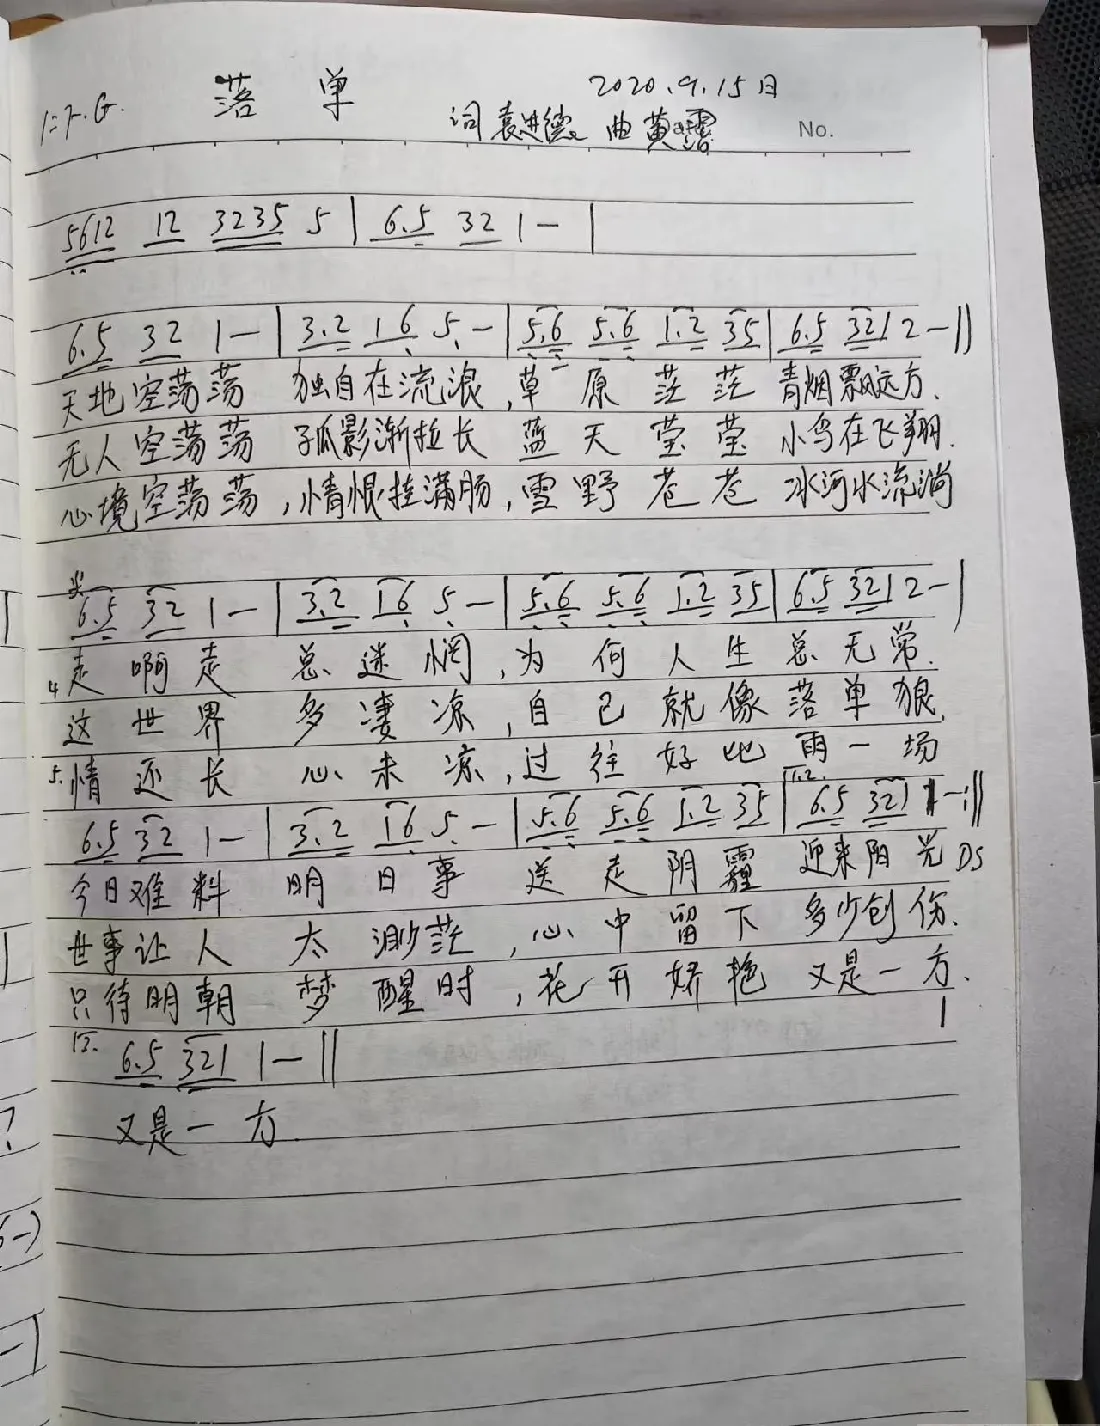 落单 2020.9.15日
词袁进德 曲黄露 No.
5612 12 3235 5 | 6.5 32 1 — |
6.5 32 1 — | 3.2 16 5 — | 5.6 5.6 1.2 35 | 6.5 321 2 — ||
天地空荡荡 独自在流浪,草原茫茫 青烟飘远方.
无人空荡荡 孑孤影渐拉长 蓝天莹莹 小鸟在飞翔.
心境空荡荡,情恨挂满肠,雪野苍苍 冰河水流淌
6.5 32 1 — | 3.2 16 5 — | 5.6 5.6 1.2 35 | 6.5 321 2 — |
4 走啊走 总迷惘,为何人生总无常.
这世界 多凄凉,自己就像落单狼.
5. 情还长 心未凉,过往好比雨一场
6.5 32 1 — | 3.2 16 5 — | 5.6 5.6 1.2 35 | 6.5 321 1 — :||
今日难料 明日事 送走阴霾 迎来阳光 DS
世事让人 太渺茫,心中留下 多少创伤.
只待明朝 梦醒时,花开娇艳 又是一方.
6.5 321 1 — ||
又是一方.